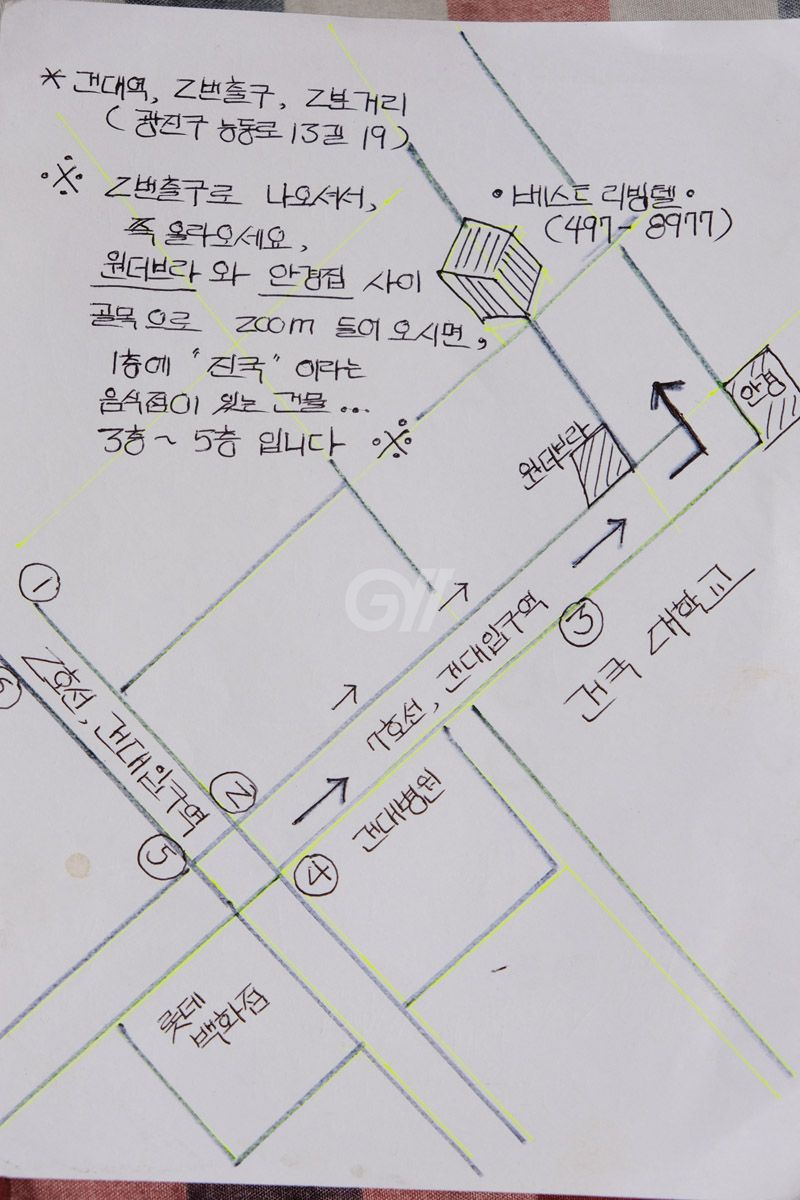 * 건대역, 2번출구, 2분거리
( 광진구 능동로 13길 19 )
※ 2번출구로 나오셔서,
쭉 올라오세요,
원더브라 와 안경집 사이
골목으로 zoom 들어오시면,
1층에 "진국" 이라는
음식점이 있는 건물 ...
3층 ~ 5층 입니다 ※
• 베스트 리빙텔 •
(497 - 8977)
안경
원더브라
①
2호선, 건대입구역
6
7호선, 건대입구역
③
건국 대학교
②
⑤
④
건대병원
롯데
백화점
GM